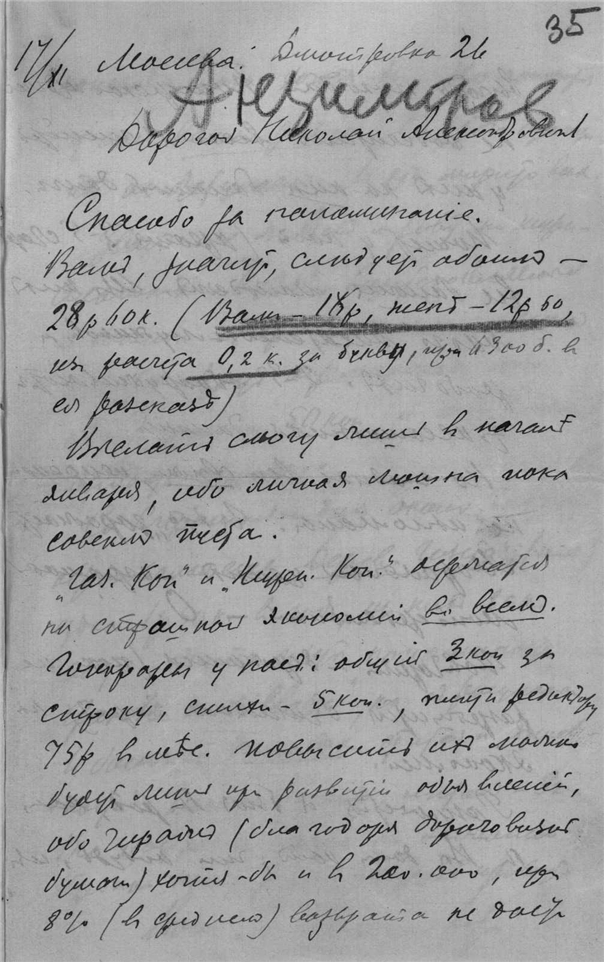 35
17/XII Москва. Дмитровка 26
Дорогой Николай Александрович
Спасибо за напоминаніе.
Вамъ, значитъ, слѣдуетъ обоимъ —
28р 60к. (Вамъ – 16р, женѣ – 12р 60,
изъ расчета 0,2 к. за букву, при 6300 б. в
ея разсказѣ)
Выслать смогу лишь в началѣ
января, ибо личная мошна пока
совсемъ пуста.
"Газ. Коп" и "Журн. Коп." держатся
на страшной экономіи во всемъ.
Гонорары у насъ: общій 3 коп за
строку, стихи – 5 коп.,
75р в мѣс. повысить ихъ можно
будетъ лишь при развитіи объявленій,
ибо тиражъ (благодаря дороговизнѣ
бумаги) хотя-бы и в 200.000, при
8% (в среднемъ) возврата не даетъ